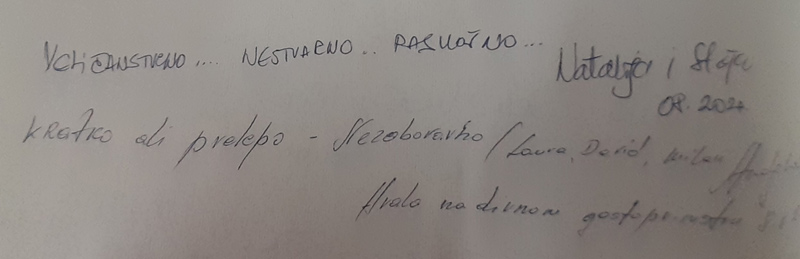 VELIČANSTVENO.... NESTVARNO.. RASKOŠNO...
Natalija i
08. 2024
KRATKO ali prelepo - Nezaboravno / Laura, David, Milan
Hvala na divnom gostoprimstvu